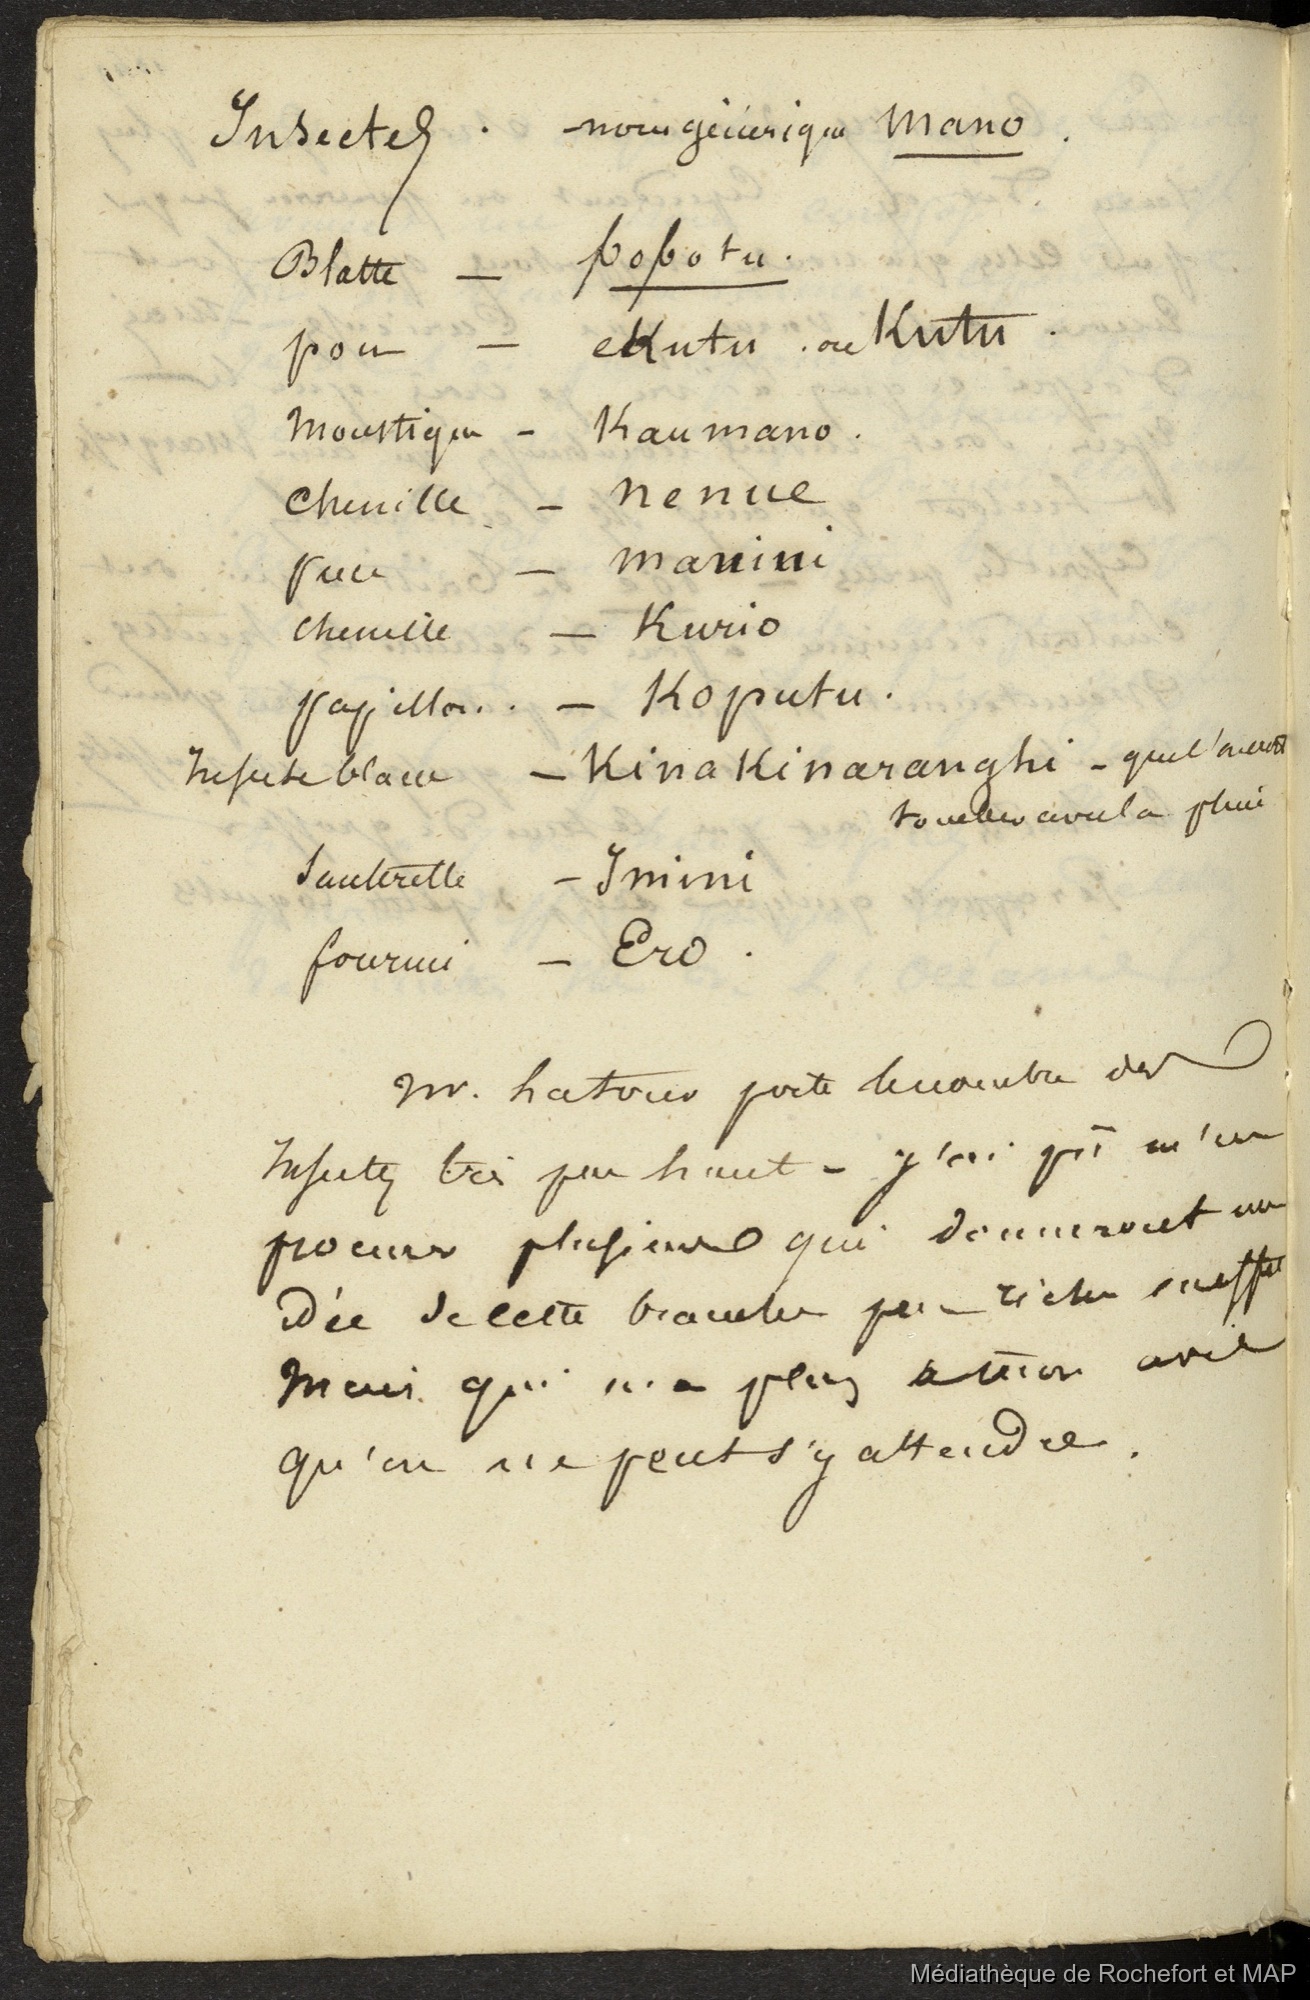 Insectes. - nom générique mano.
Blatte - popotu.
pou - eKutu. ou Kutu.
Moustique - Kaumano.
Chenille - nenue
puce - manini
chenille - Kurio
papillon. - Koputu.
Insecte blanc - KinaKinaranghi - que l'on voit
tomber avec la pluie
Sauterelle - Imini
fourmi - Ero.
Mr. porte le nombre des
Insectes très peu haut - j'ai pû m'en
procurer plusieurs qui donneront une
idée de cette branche peu riche en effet
Mais qui n'a plus
qu'on ne peut s'y attendre.
Médiathèque de Rochefort et MAP